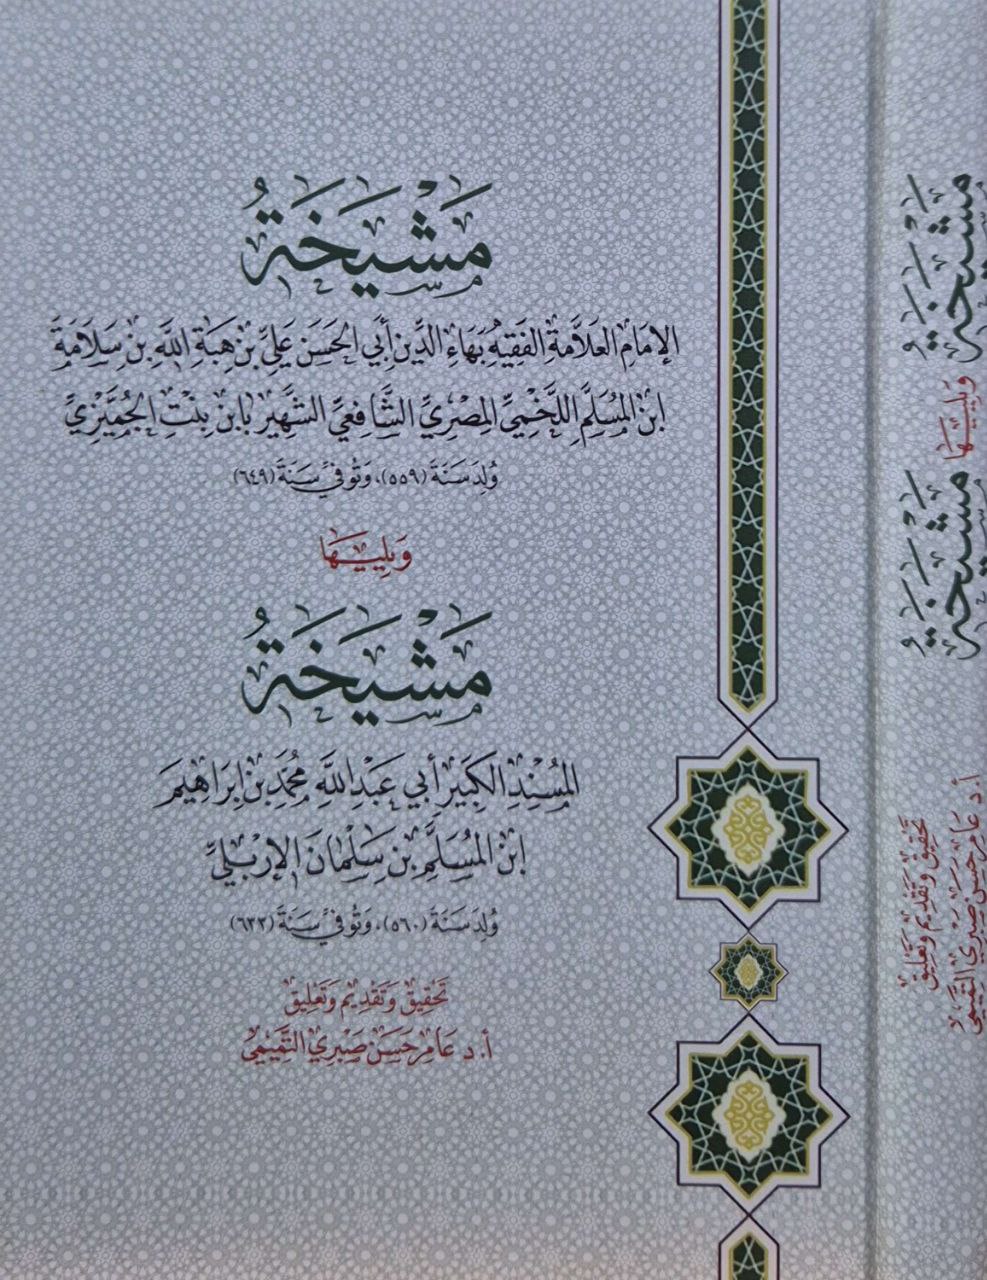 مَشْيَخَةُ
الإِمَامِ العَلَّامَةِ الفَقِيهِ بَهَاءِ الدِّينِ أَبِي الحَسَنِ عَلِيِّ بْنِ هِبَةِ اللَّهِ بْنِ سَلَامَةَ
ابْنِ المُسَلَّمِ اللَّخْمِيِّ المِصْرِيِّ الشَّافِعِيِّ الشَّهِيرِ بِابْنِ بِنْتِ الجُمَّيْزِيِّ
وُلِدَ سَنَةَ (٥٥٩)، وَتُوُفِّيَ سَنَةَ (٦٤٩)
وَيَلِيهَا
مَشْيَخَةُ
المُسْنِدِ الكَبِيرِ أَبِي عَبْدِ اللَّهِ مُحَمَّدِ بْنِ إِبْرَاهِيمَ
ابْنِ المُسَلَّمِ بْنِ سَلْمَانَ الإِرْبِلِيِّ
وُلِدَ سَنَةَ (٥٦٠)، وَتُوُفِّيَ سَنَةَ (٦٣٣)
تَحْقِيق وَتَقْدِيم وَتَعْلِيق
أ. د عَامِر حَسَن صَبْرِي التَّمِيمِيّ
مَشْيَخَةُ
وَيَلِيهَا
مَشْيَخَةُ
تَحْقِيق وَتَقْدِيم وَتَعْلِيق
أ. د عَامِر حَسَن صَبْرِي التَّمِيمِيّ